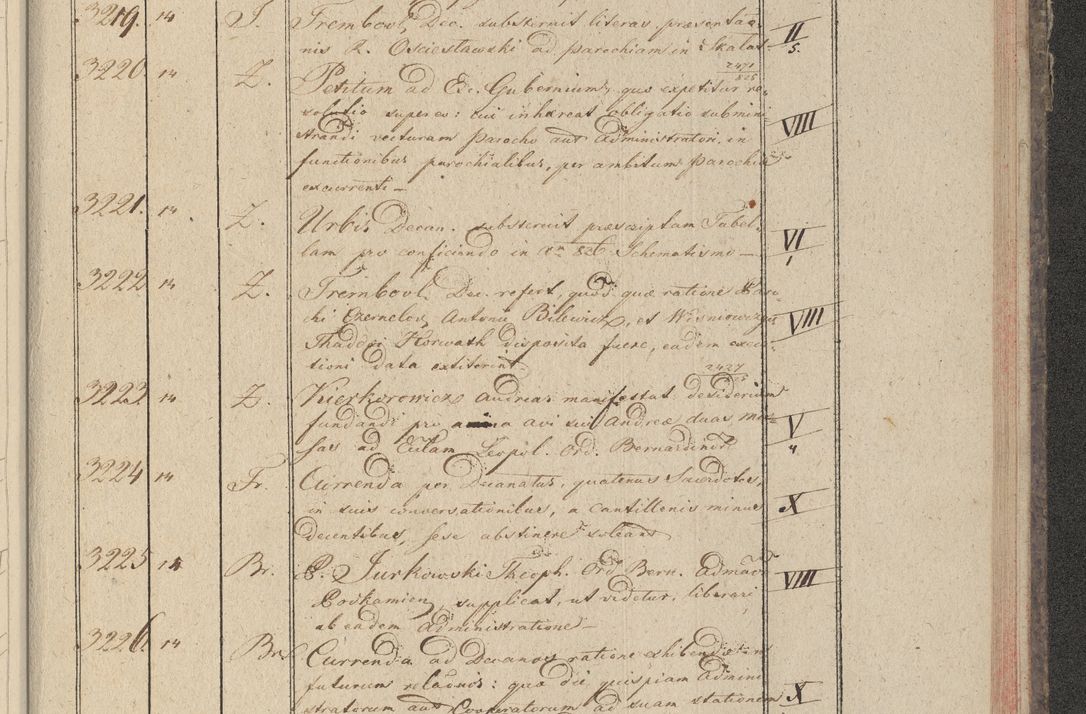 3219. 14 J. Trembovl. Dec. substernit literas, præsenta-
nis R. Osciesławski ad parochiam in Skałat II 5
3220. 14 Z. Petitum ad Ex. Gubernium, quo expetitur re- 2471 825
solutio super eo: cui inhæreat obligatio submini-
strandi vecturam Parocho aut Administratori, in VIII
functionibus parochialibus, per ambitum Parochiæ
excurrenti —
3221. 14 Z. Urbis Decan. substernit præscriptam Tabel-
lam pro conficiendo in 826 Schematismo — VI 1
3222 14 Z. Trembovl. Dec. refert, quod quæ ratione Paro-
chi Czernelov, Antonii Bilewicz, et Wisniowczyk VIII
Thadæi Horwath disposita fuere, eadem execu-
tioni data extiterint. 2427
3223 14 Z. Kierkorowicz Andreas manifestat desiderium
fundandi pro anima avi sui Andreæ duas mis- V
sas ad Eccam Leopol. Ord. Bernardinor. 4
3224 14 Fr. Currenda per Decanatus, quatenus Sacerdotes,
in suis conversationibus, a cantillenis minus X
decentibus, sese abstinere soleant
3225 14 Br. P. Jurkowski Theoph. Ord. Bern. Admātor VIII
Podkamien, supplicat, ut videtur, liberari
ab eadem Administratione —
3226. 14 Br. Currenda ad Decanos ratione exhibendæ in
futurum relaōnis: quo die quispiam Admini-
stratorum aut Cooperatorum ad suam stationem X